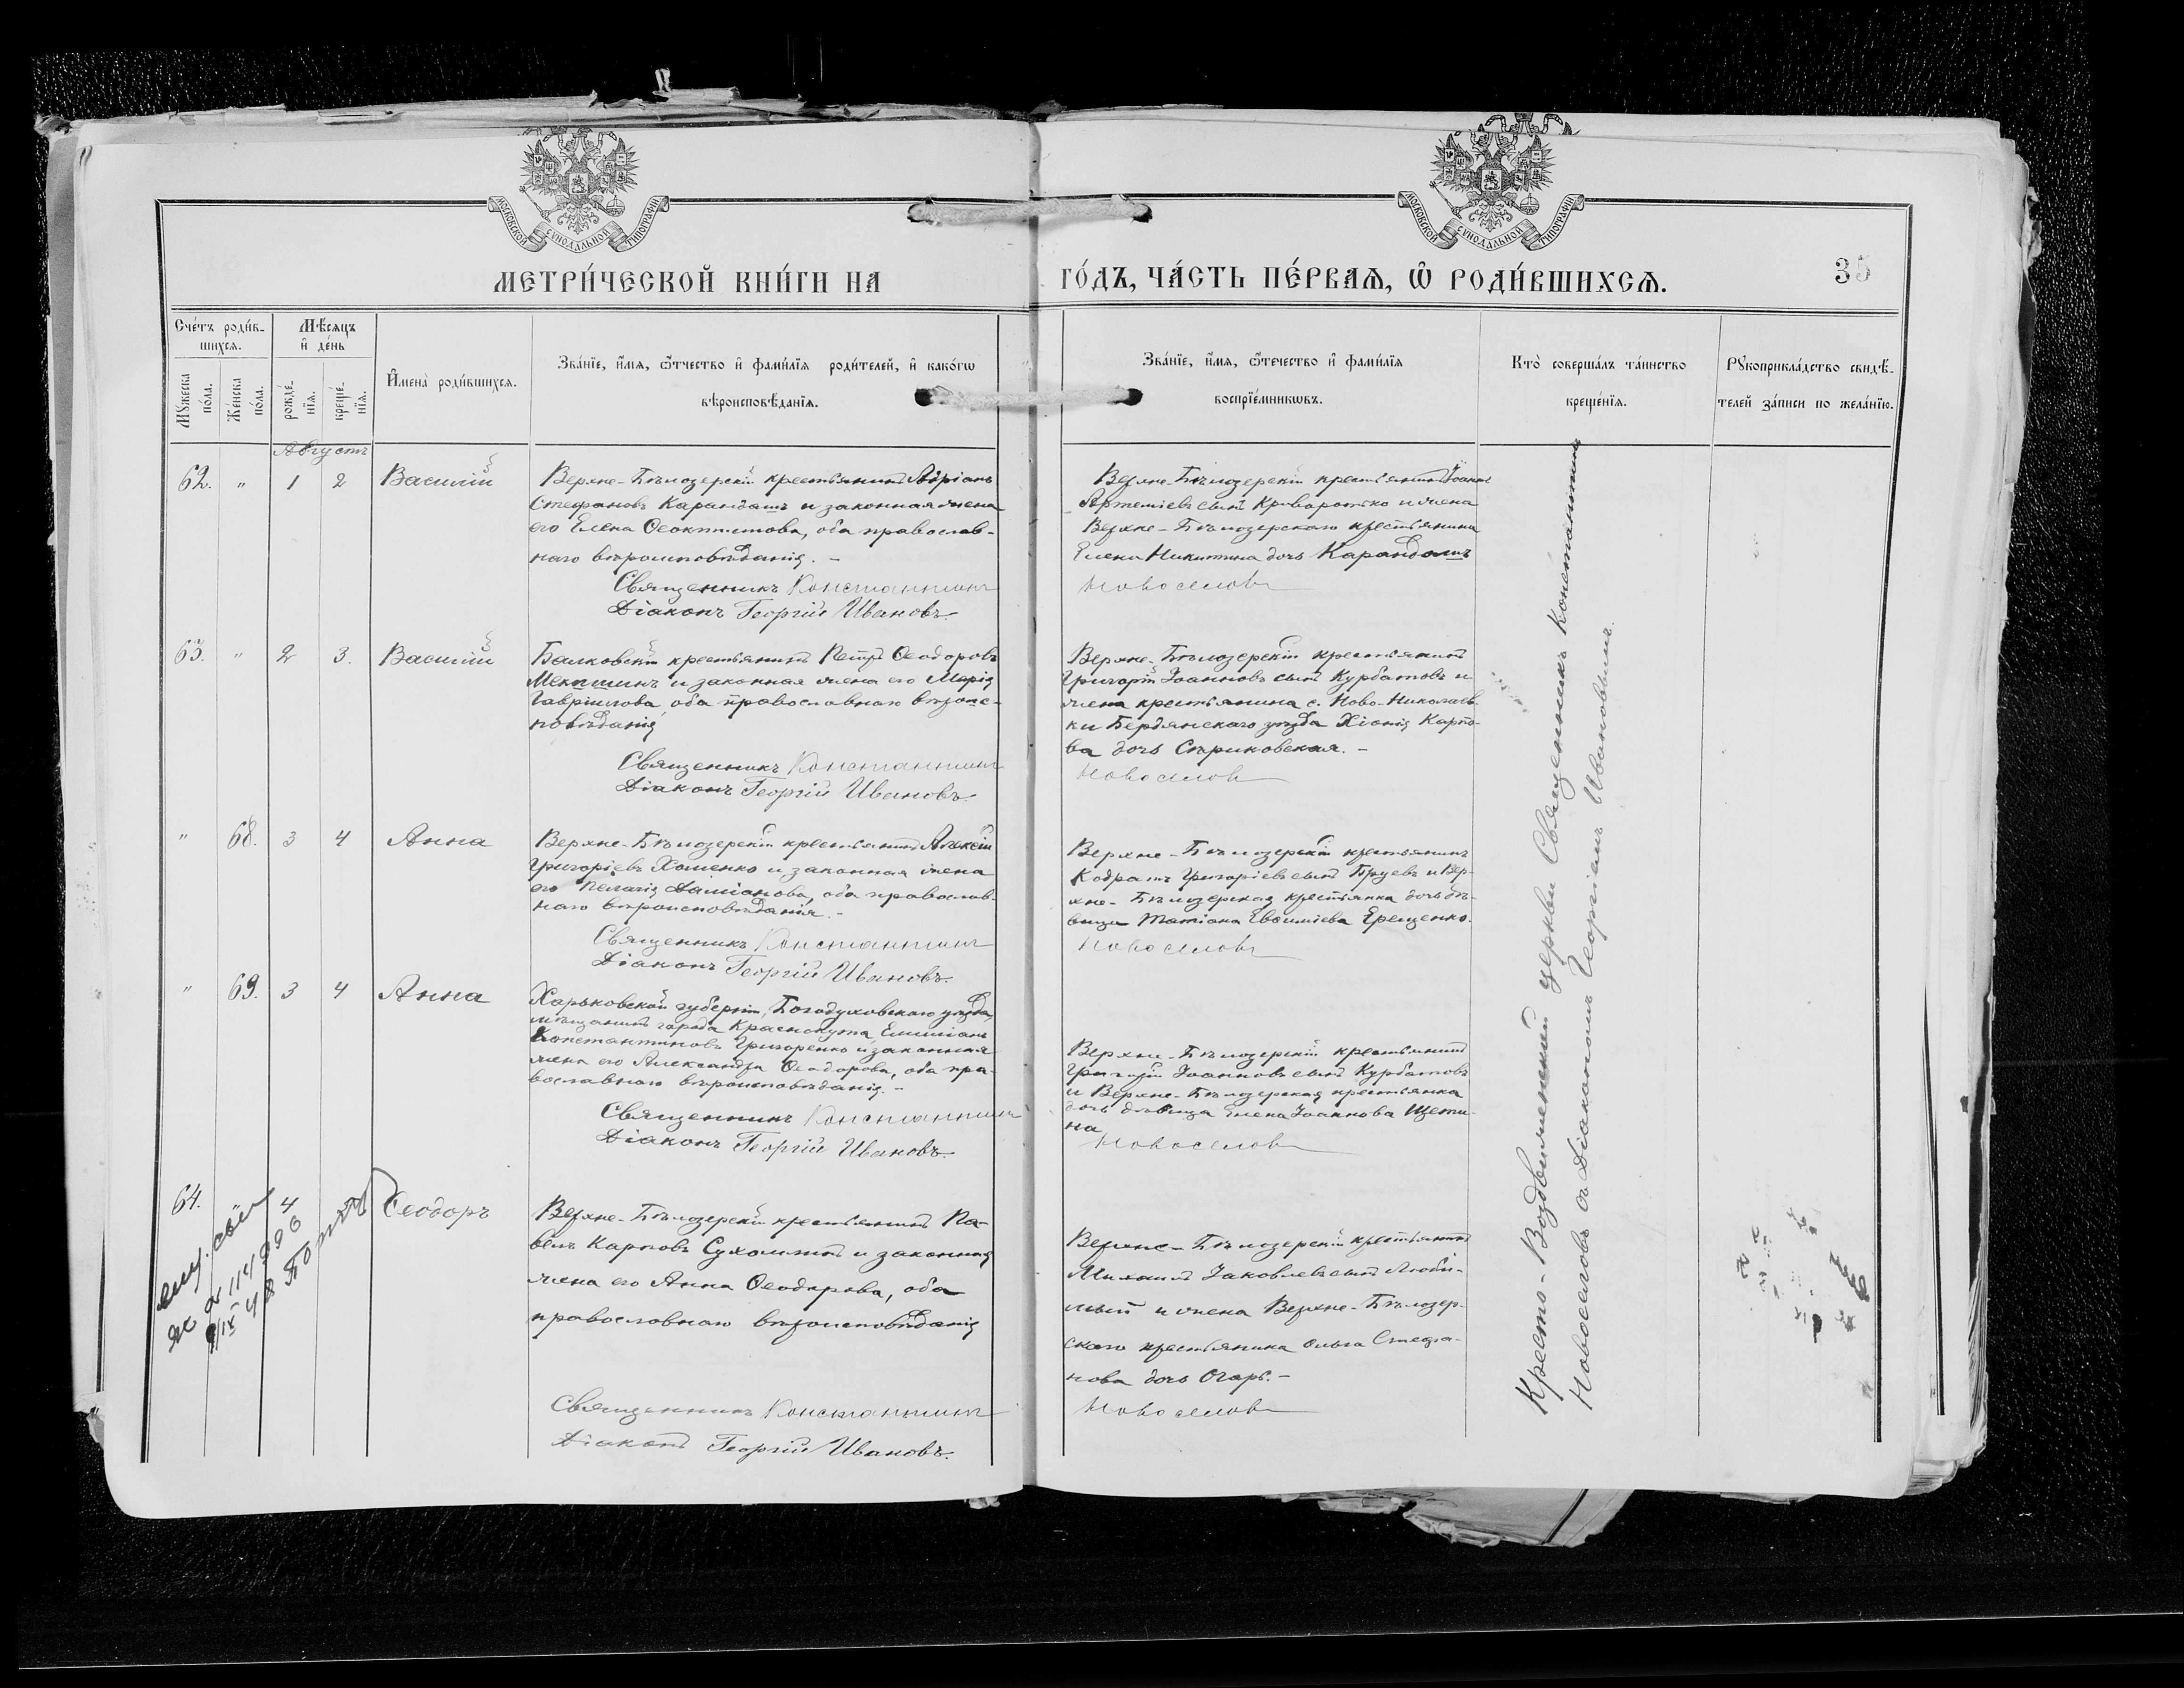 МОСКОВСКОЙ СѴНОДАЛЬНОЙ ТИПОГРАФІИ
МОСКОВСКОЙ СѴНОДАЛЬНОЙ ТИПОГРАФІИ
МЕТРИ́ЧЕСКОЙ КНИ́ГИ НА ГО́ДЪ, ЧА́СТЬ ПЕ́РВАѦ, Ѡ РОДИ́ВШИХСѦ.
35
Сче́тъ роди́в-
шихсѧ.
Мѣ́сѧцъ
и҆ де́нь
Мꙋ́жеска
по́ла.
Же́нска
по́ла.
рожде́-
нїѧ.
креще́-
нїѧ.
И҆мена̀ роди́вшихсѧ.
Зва́нїе, и҆́мѧ, ѻ҆́тчество и҆ фами́лїѧ роди́телей, и҆ како́гѡ
вѣроисповѣ́данїѧ.
Зва́нїе, и҆́мѧ, ѻ҆́течество и҆ фами́лїѧ
воспрїе́мникѡвъ.
Кто̀ соверша́лъ та́инство
креще́нїѧ.
Рꙋкоприкла́дство свидѣ́-
телей за́писи по жела́нїю.
Августъ
62. " 1 2 Василій
Верхне-Бѣлозерскій крестьянинъ Адріанъ
Стефановъ Карандашъ и законная жена
его Елена Ѳеоктистова, оба православ-
наго вѣроисповѣданія. -
Священникъ Константинъ
Діаконъ Георгій Ивановъ.
Верхне-Бѣлозерскій крестьянинъ Іоаннъ
Артеміевъ сынъ Криворотько и жена
Верхне-Бѣлозерскаго крестьянина
Елена Никитина дочь Карандашъ
Новоселовъ
63. " 2 3. Василій
Балковскій крестьянинъ Петръ Ѳеодоровъ
и законная жена его Марія
Гавріилова, оба православнаго вѣроис-
повѣданія
Священникъ Константинъ
Діаконъ Георгій Ивановъ.
Верхне-Бѣлозерскій крестьянинъ
Григорій Іоанновъ сынъ Курбатовъ и
жена крестьянина с. Ново-Николаев-
ки Бердянскаго уѣзда Хіонія Карпо-
ва дочь Сѣриковская. -
Новоселовъ
" 68. 3 4 Анна
Верхне-Бѣлозерскій крестьянинъ Алексій
Григоріевъ Хоменко и законная жена
его Пелагія Даміанова, оба православ-
наго вѣроисповѣданія. -
Священникъ Константинъ
Діаконъ Георгій Ивановъ.
Верхне-Бѣлозерскій крестьянинъ
Кодратъ Григоріевъ сынъ Бруевъ и Вер-
хне-Бѣлозерская крестьянка дочь дѣ-
вица Татіана Евѳиміева Ерещенко.
Новоселовъ
" 69. 3 4 Анна
Харьковской губерніи, Богодуховскаго уѣзда,
мѣщанинъ города Краснокута Емиліанъ
Константиновъ Григоренко и законная
жена его Александра Ѳеодорова, оба пра-
вославнаго вѣроисповѣданія. -
Священникъ Константинъ
Діаконъ Георгій Ивановъ.
Верхне-Бѣлозерскій крестьянинъ
Григорій Іоанновъ сынъ Курбатовъ
и Верхне-Бѣлозерская крестьянка
дочь дѣвица Елена Іоаннова Щети-
на
Новоселовъ
64. " 4 Ѳеодоръ
Верхне-Бѣлозерскій крестьянинъ Па-
велъ Карповъ Сухолитъ и законная
жена его Анна Ѳеодорова, оба
православнаго вѣроисповѣданія
Священникъ Константинъ
Діаконъ Георгій Ивановъ.
Верхне-Бѣлозерскій крестьянинъ
Михаилъ Іаковлевъ сынъ Люби-
мый и жена Верхне-Бѣлозер-
скаго крестьянина Ольга Стефа-
нова дочь Огарь. -
Новоселовъ
Кресто-Воздвиженской церкви Священникъ Константинъ
Новоселовъ съ Діакономъ Георгіемъ Ивановымъ.